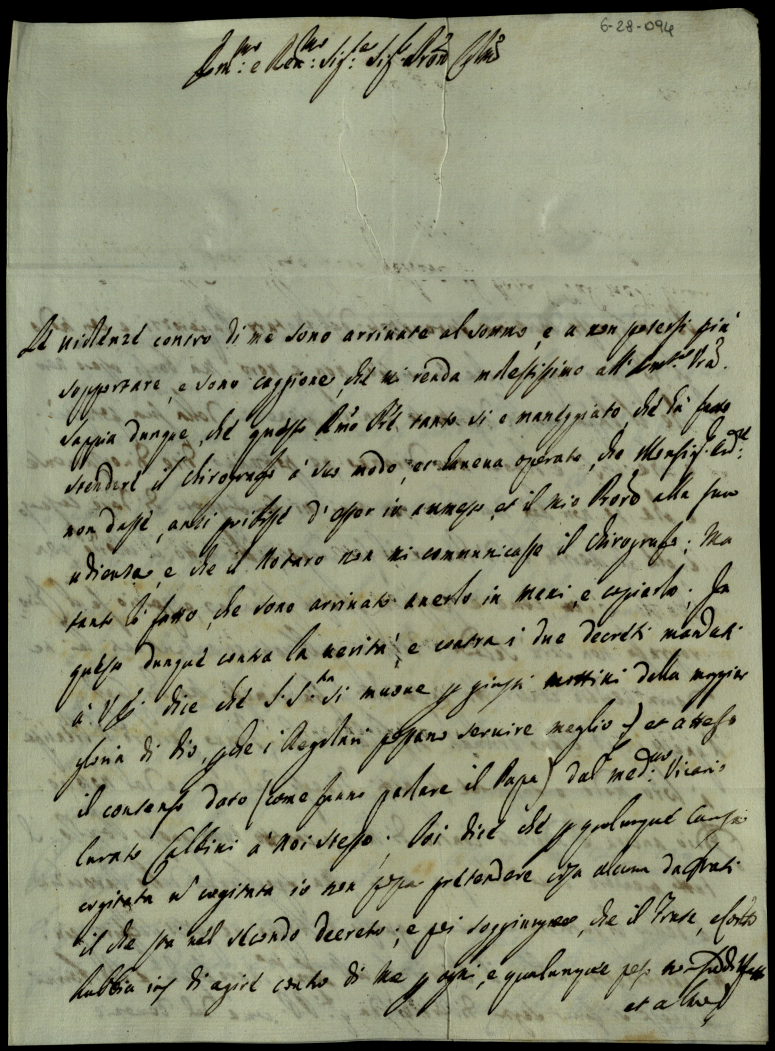 6-28-094
Em:mo e Rev:mo Sig:re Sig:re Pron Col:mo
Le violenze contro di me sono arrivate al sommo, e a non potersi piu'
sopportare, e sono caggione, che mi renda molestissimo all' Em:
sappia dunque, che questo tanto si e maneggiato, che hà fatto
stendere il Chirografo à suo modo, et haveva operato, che Monsig:r
non dasse, anzi d'esser io ammesso, et il mio alla sua
udienza, e che il Notaro non mi communicasse il Chirografo; Ma
tanto hò fatto, che sono arrivato averlo in mani, e copiarlo; In
questo dunque contra la verità, e contra i due decreti mandati
à V.E. dice che S. S.tà si muove p giusti mottivi della maggior
gloria di Dio, pche i Regolari possano servire meglio, et atteso
il consenso dato (come fanno parlare il Papa) dal med:mo Vicario
Curato à noi stesso. Poi dice che p qualunque Causa
cogitata ò incogitata io non possa pretendere cosa alcuna da frati
il che stà nel secondo decreto; e poi soggiungere, che il
habbia ius di agire contro di me p ogni, e qualunque
et a